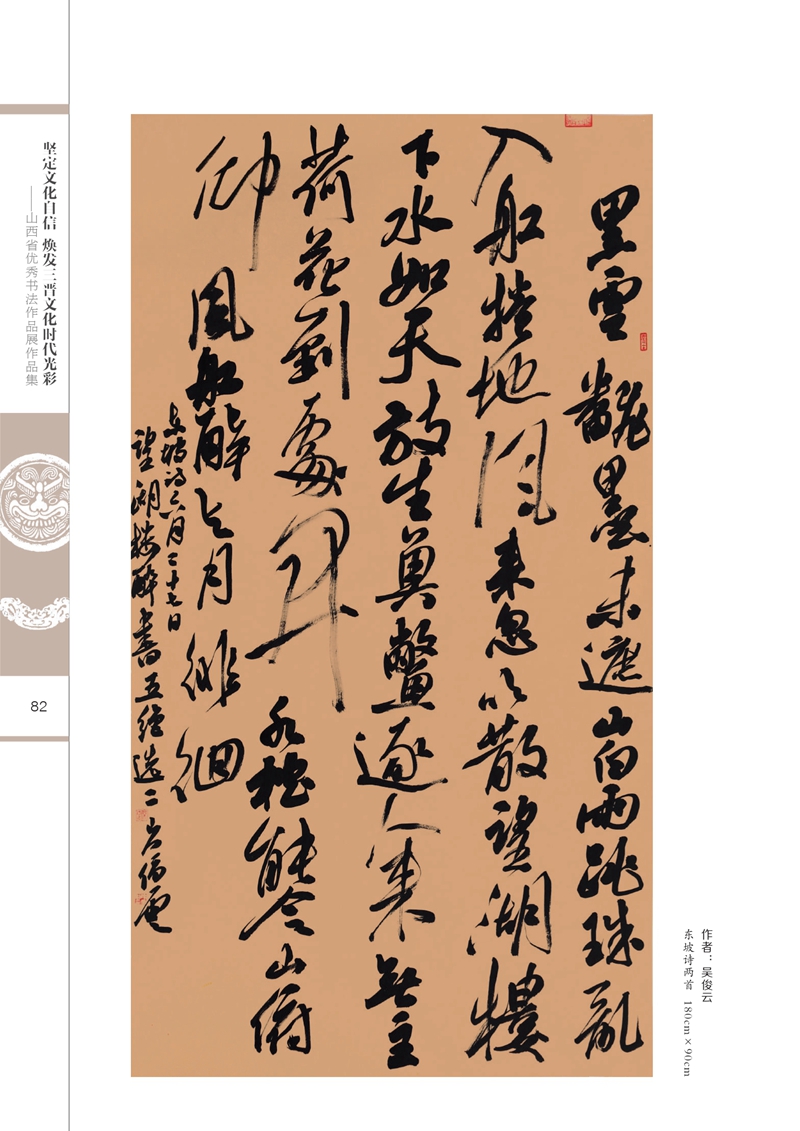 坚定文化自信 焕发三晋文化时代光彩
——山西省优秀书法作品展作品集
82
黑雲飜墨未遮山白雨跳珠亂
入船捲地風來忽吹散望湖樓
下水如天放生魚鱉逐人來無主
荷花到處開水枕能令山俯
仰風船解与月徘徊
东坡诗六月二十七日
望湖楼醉書五绝选二 吴俊雲
作者：吴俊云
东坡诗两首 180cm×90cm